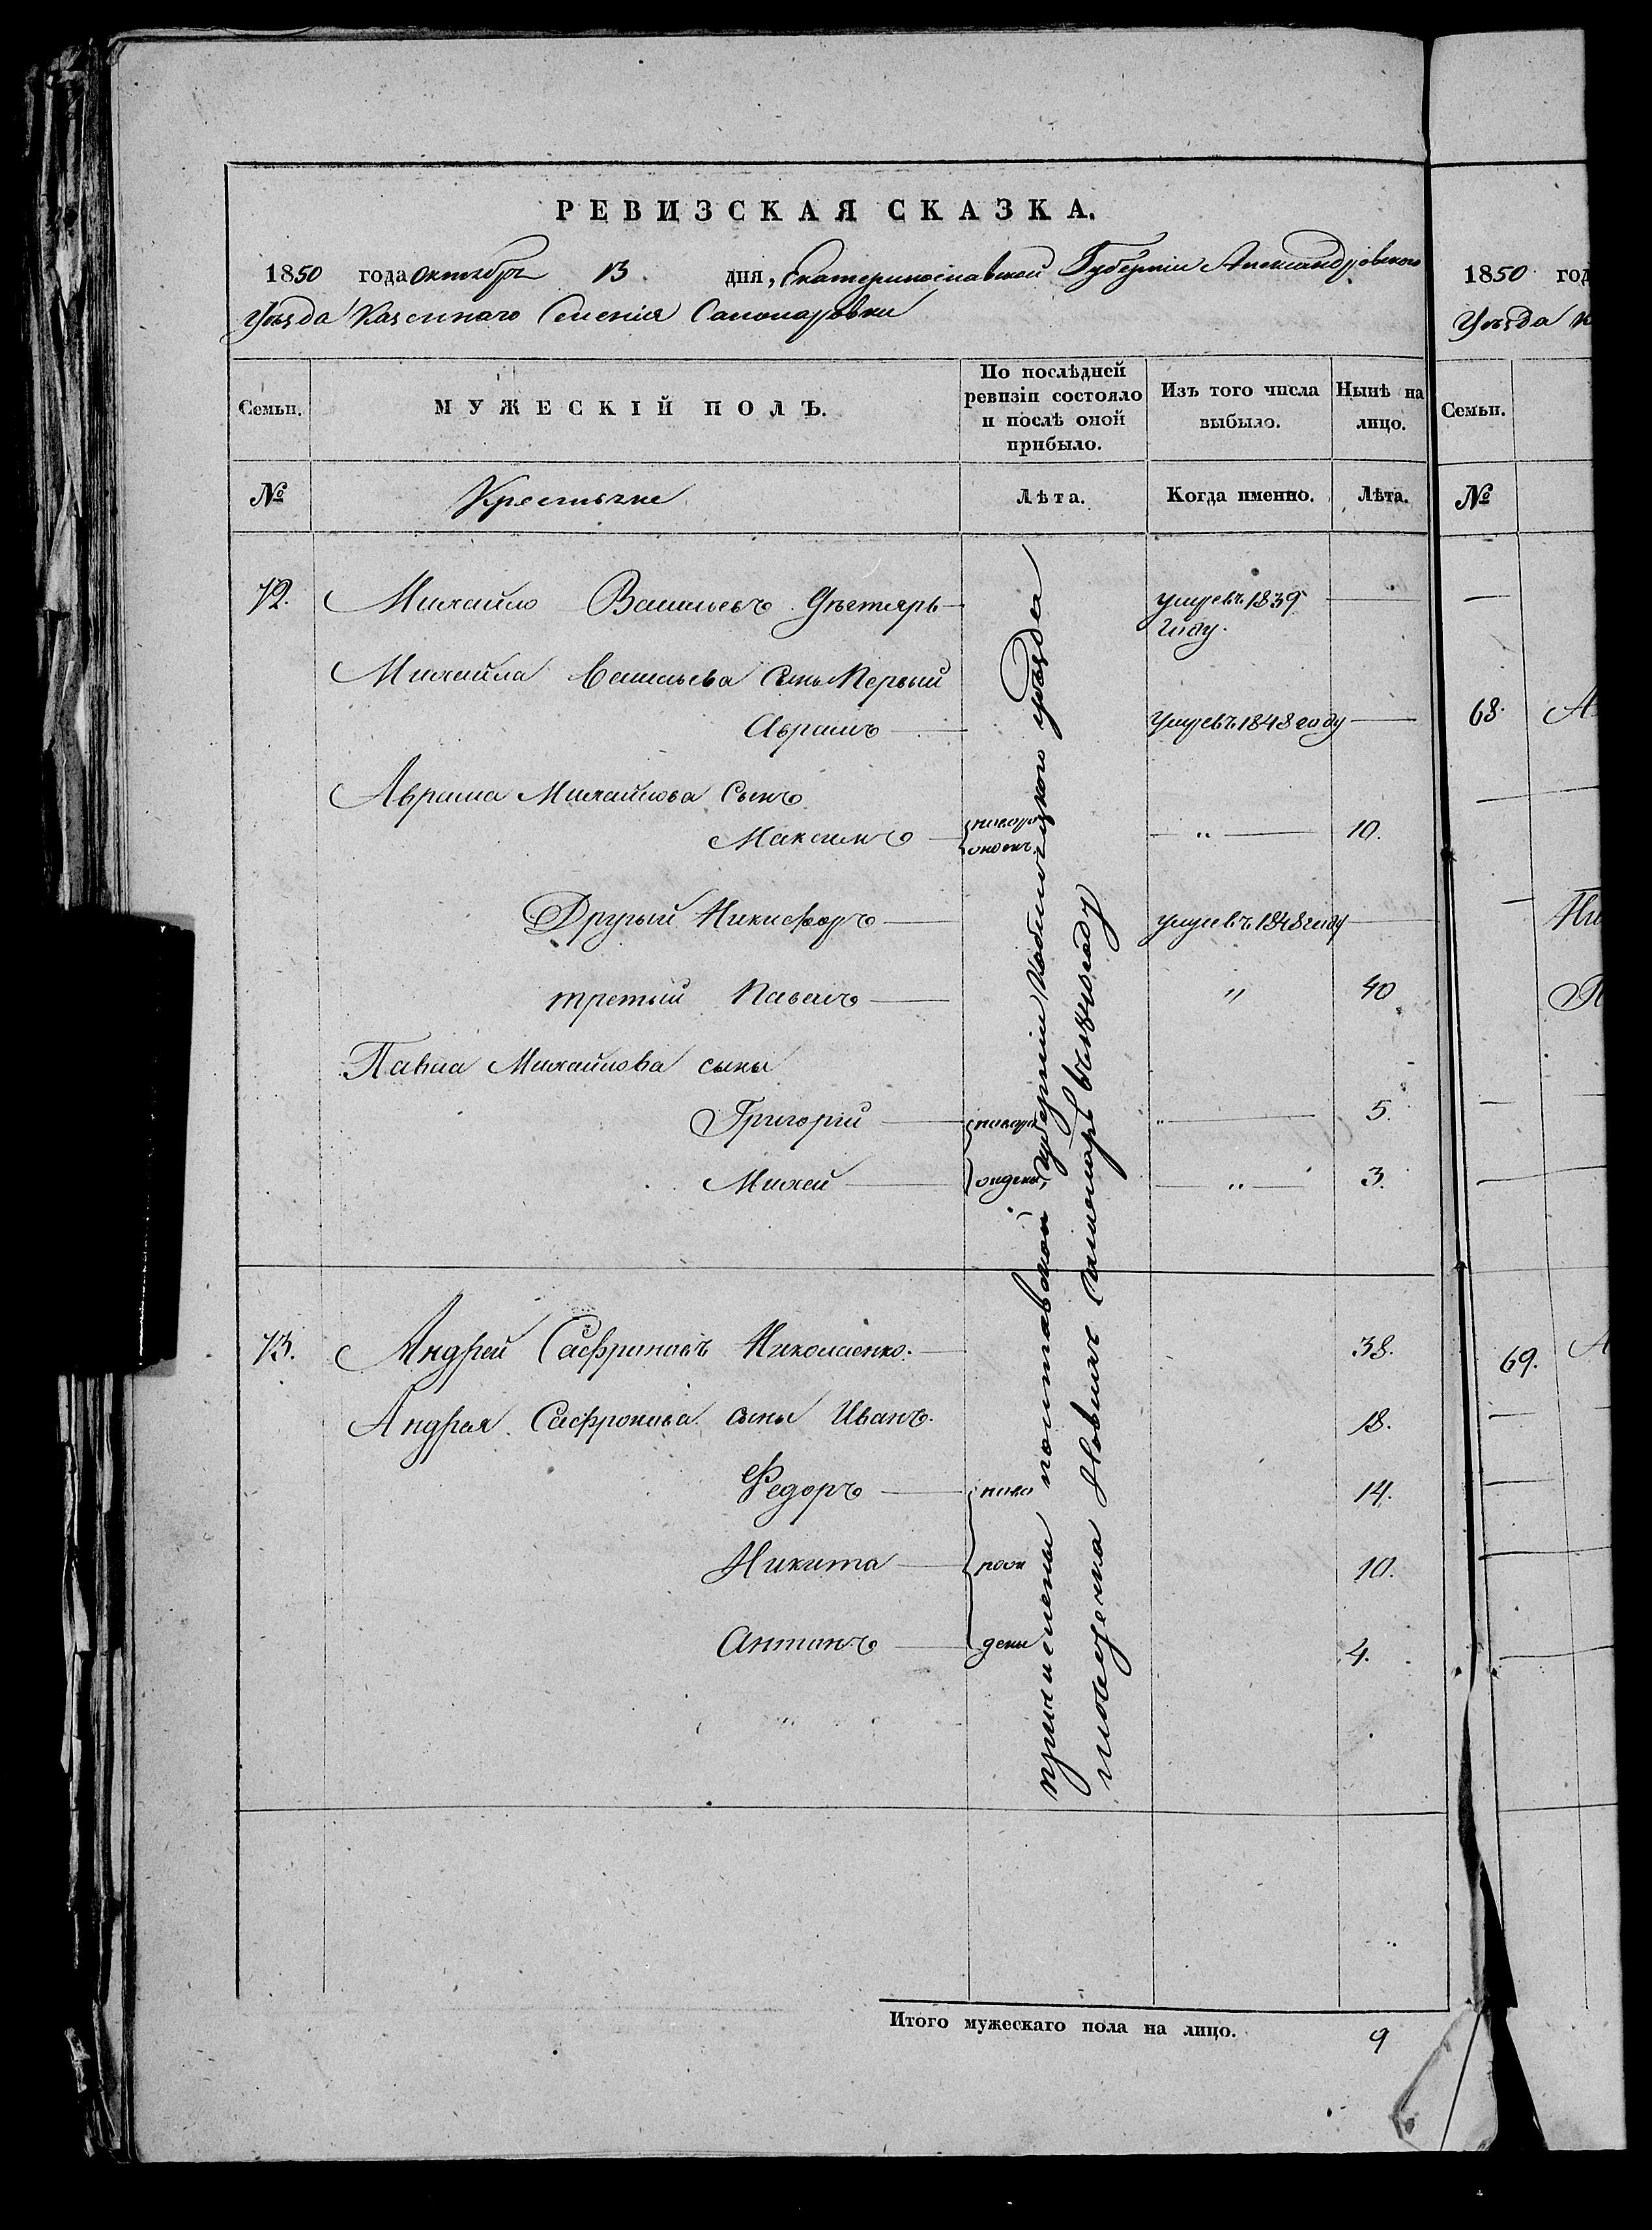 РЕВИЗСКАЯ СКАЗКА.
1850 года октября 13 дня, Екатеринославской Губернии Александровского
Уѣзда Казеннаго Селенія
Семьи.
МУЖЕСКІЙ ПОЛЪ.
По послѣдней ревизіи состояло и послѣ оной прибыло.
Изъ того числа выбыло.
Нынѣ на лицо.
№
Крестьяне
Лѣта.
Когда именно.
Лѣта.
72. Михайло Васильевъ Дѣгтярь умревъ 1839 году.
Михайла Васильева Сынъ Первый
Аврамъ умревъ 1848 году
Аврама Михайлова Сынъ
Максимъ новорожденъ " 10.
Другый Никифоръ умревъ 1848 году
третый Павелъ " 40
Павла Михайлова сыны
Григорій новорож " 5.
Михей дены " 3.
73. Андрей Сафроновъ Николаенко. 38.
Андрея Сафронова сыны Иванъ. 18.
Федоръ ново 14.
Никита рож 10.
Антонъ дены 4.
причислены полтавской губерніи Кобеляцкого уѣзда
Итого мужескаго пола на лицо. 9
1850 год
Уѣзда
Семьи.
№
68.
69.